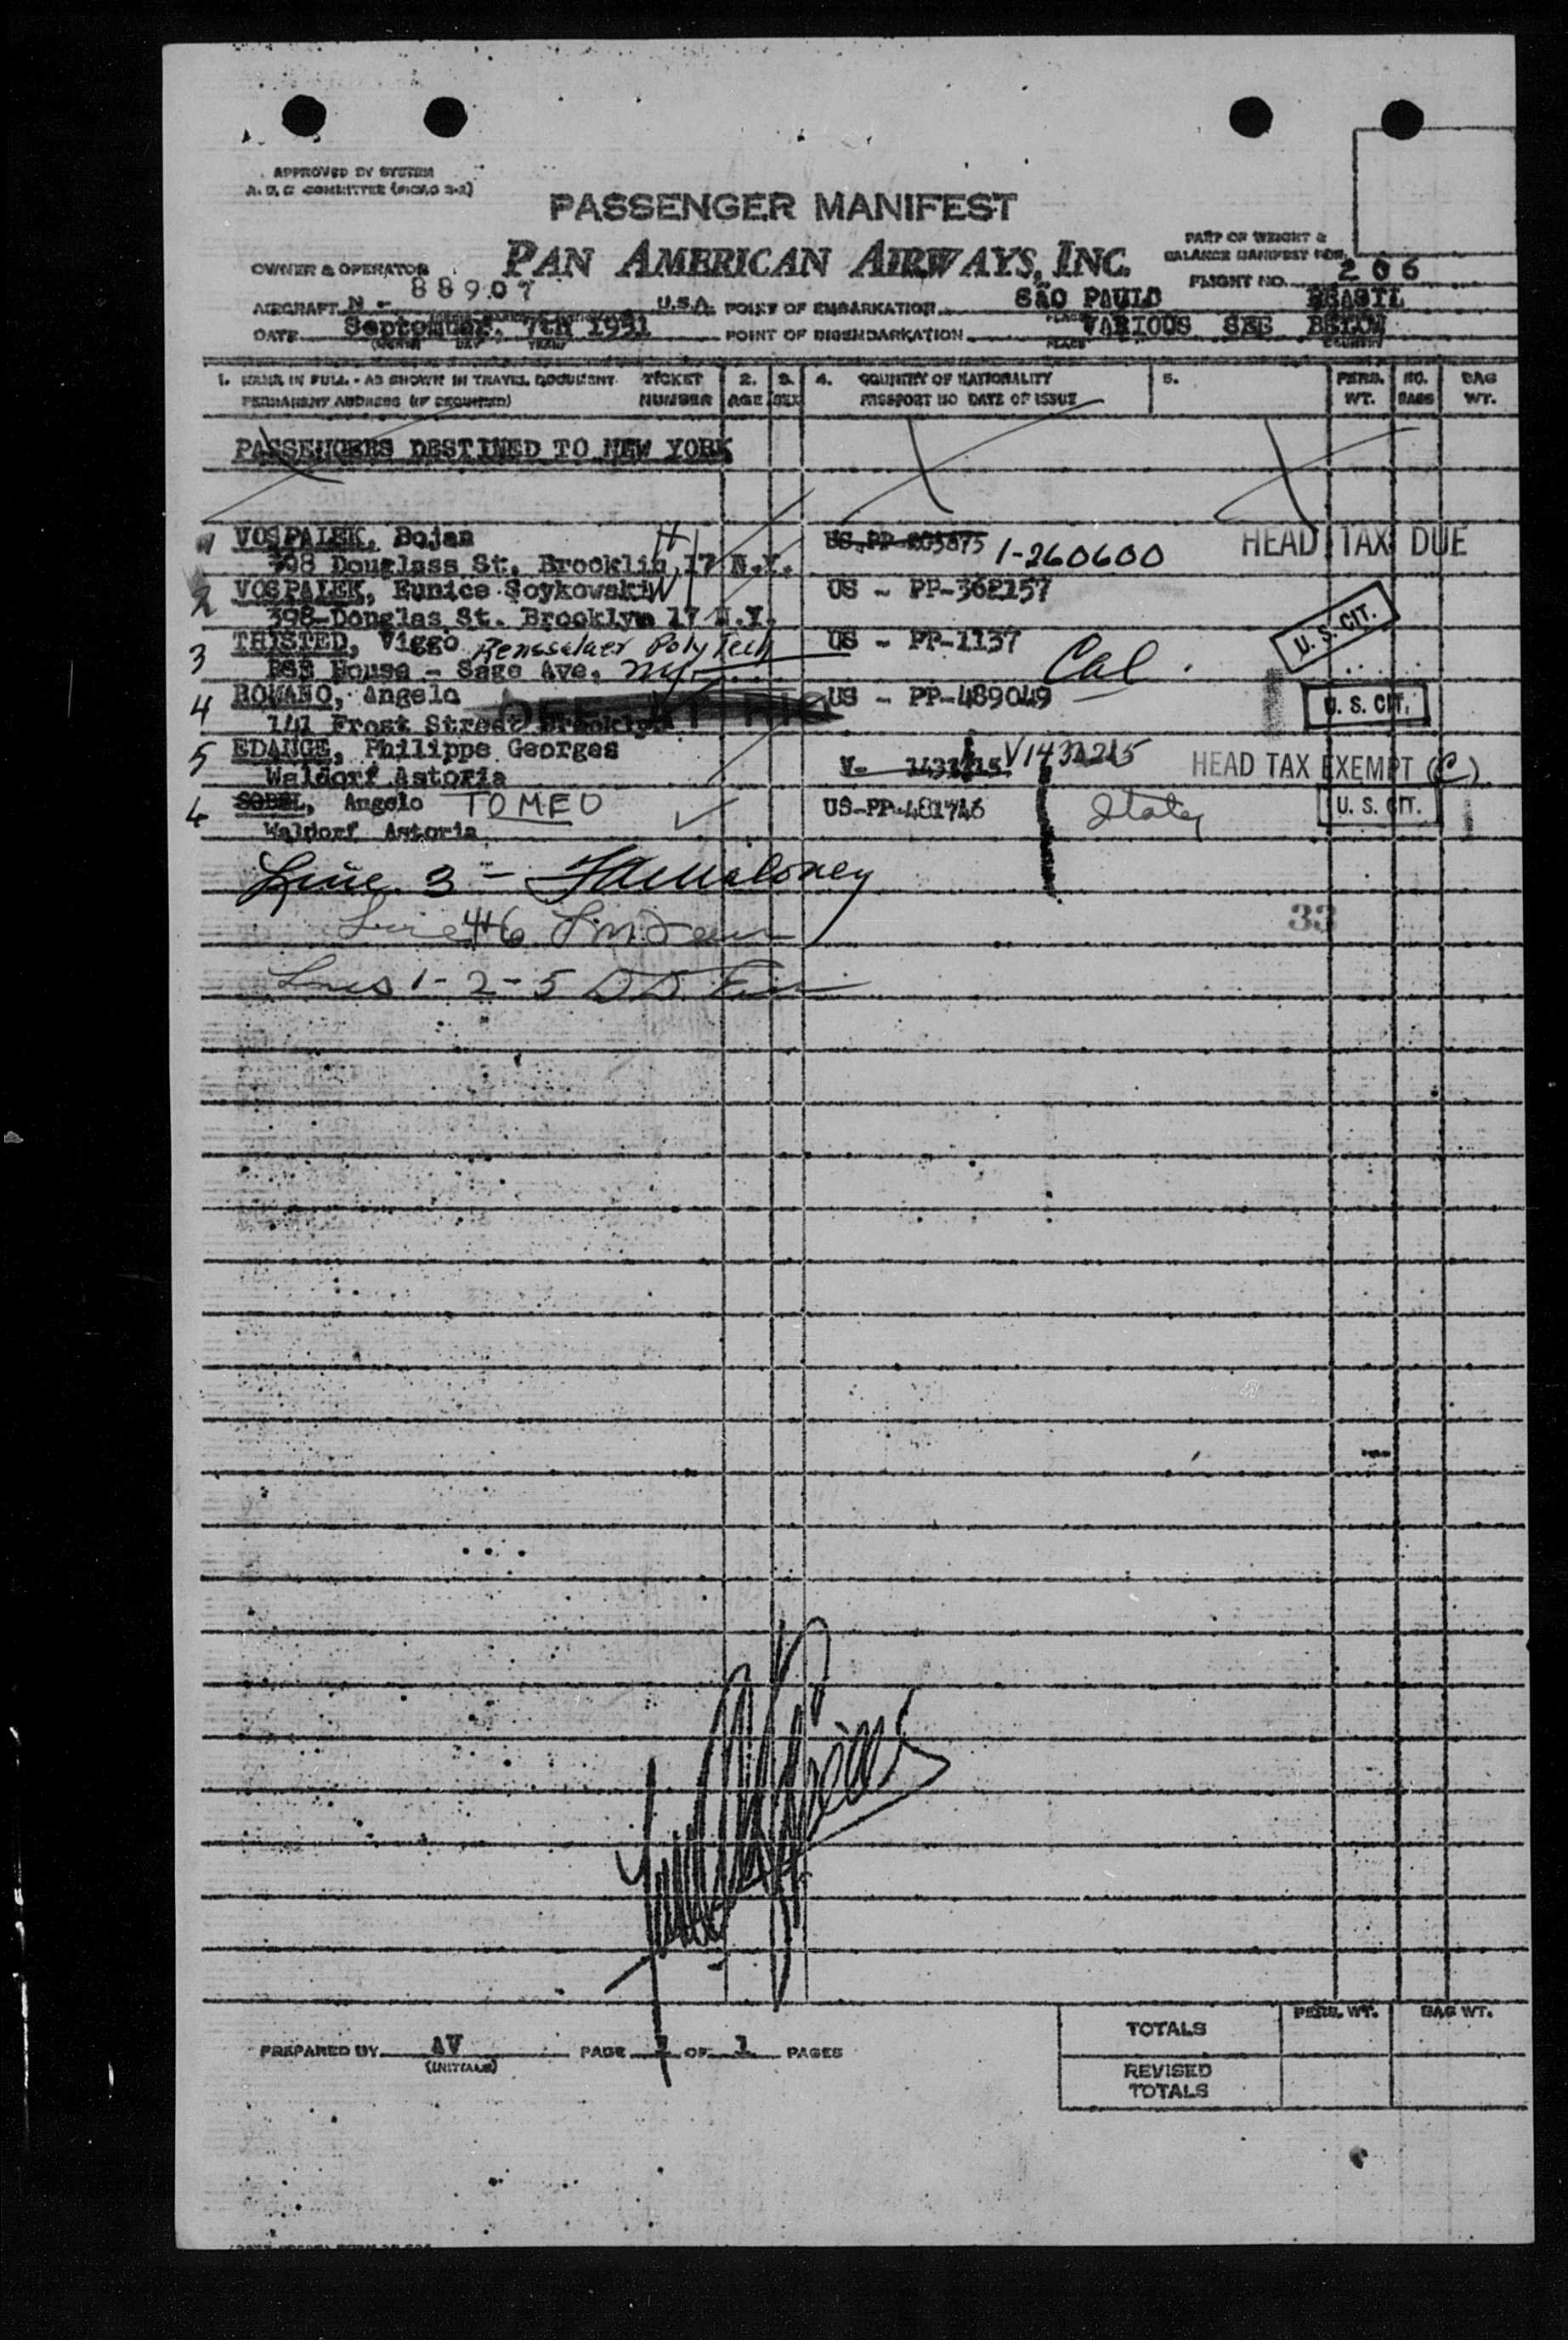 APPROVED BY SYSTEM
PASSENGER MANIFEST
PAN AMERICAN AIRWAYS, INC.
PART OF WEIGHT &
BALANCE MANIFEST FOR
OWNER & OPERATOR
FLIGHT NO. 206
AIRCRAFT N - 88907 U.S.A. POINT OF EMBARKATION SÃO PAULO BRASIL
DATE September, 7th 1951 POINT OF DISEMBARKATION VARIOUS SEE BELOW
1. NAME IN FULL - AS SHOWN IN TRAVEL DOCUMENT TICKET 2. 3. 4. COUNTRY OF NATIONALITY 5. PERS. NO. BAG
PERMANENT ADDRESS (IF REQUIRED) NUMBER AGE SEX PASSPORT NO DATE OF ISSUE WT. BAGS WT.
PASSENGERS DESTINED TO NEW YORK
1 VOSPALEK, Bojan H 1-260600 HEAD TAX DUE
398 Douglass St. Brocklin 17 N.Y.
2 VOSPALEK, Eunice Soykowski W US - PP-362157
398-Douglas St. Brooklyn 17 N.Y.
3 THISTED, Viggo Rensselaer Poly Tech US - PP-1137 Cal. U. S. CIT.
House - Sage Ave. NY
4 ROMANO, Angelo US - PP-489049 U. S. CIT.
141 Frost Street Brooklyn
5 EDANGE, Philippe Georges V. V1431215 HEAD TAX EXEMPT (C)
Waldorf Astoria
SOBEL, Angelo TOMEO US-PP-481746 Italy U. S. CIT.
Waldorf Astoria
Line 3 - Maloney
33
Line 4+6
Lines 1-2-5
PREPARED BY AV PAGE 1 OF 1 PAGES
(INITIALS)
TOTALS PERS. WT. BAG WT.
REVISED
TOTALS